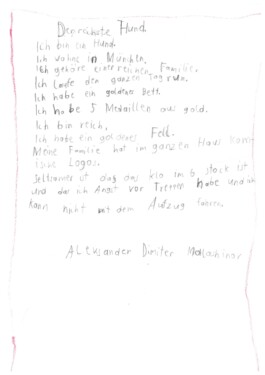 Der reichste Hund.
Ich bin ein Hund.
Ich wohne in München.
Ich gehöre einer reichen Familie.
Ich laufe den ganzen Tag rum.
Ich habe ein goldenes Bett.
Ich habe 5 Medaillen aus gold.
Ich bin reich.
Ich habe ein goldenes Fell.
Meine Familie hat im ganzen Haus
Logos.
Seltsames ist daß das klo im 6 stock ist
und das ich Angst vor Treten habe und ich
kann nicht mit dem Aufzug fahren.
Aleksander Dimiter